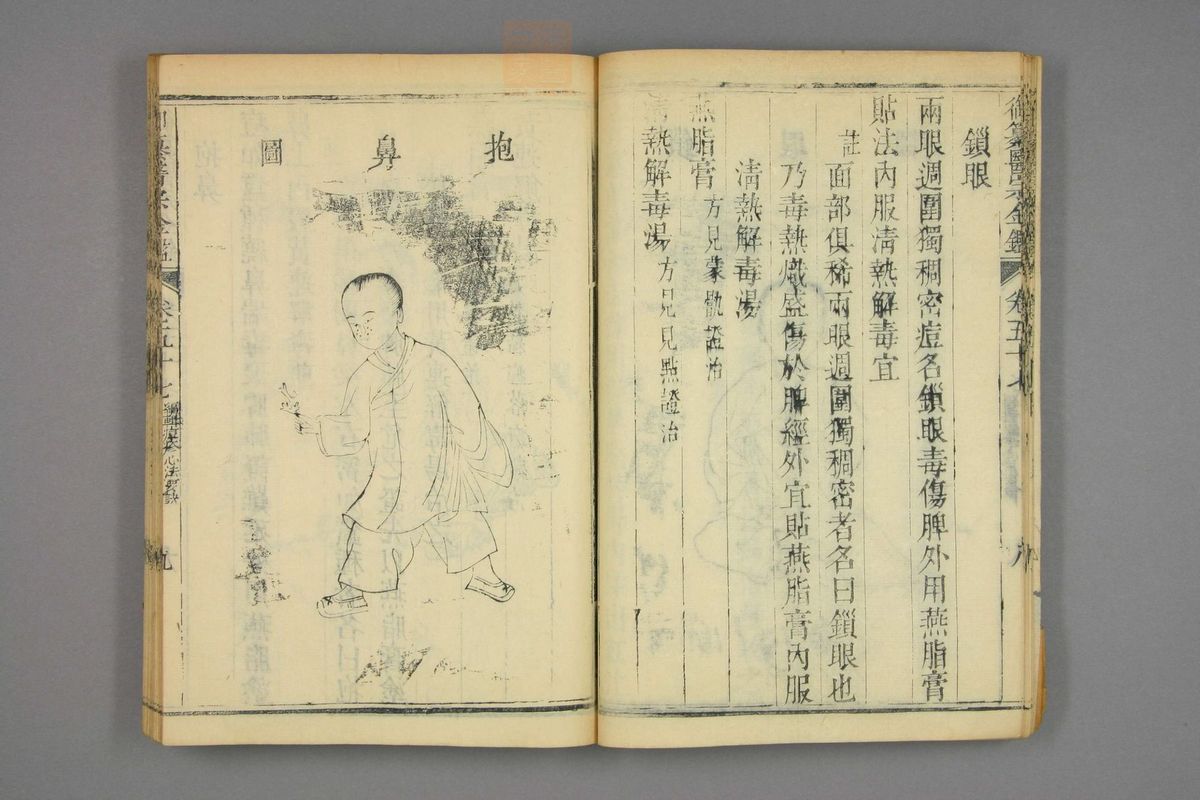 御纂醫宗金鑑 卷五十七 八
鎖眼
兩眼週圍獨稠密痘名鎖眼毒傷脾外用燕脂膏
貼法內服清熱解毒宜
註 面部俱稀兩眼週圍獨稠密者名曰鎖眼也
乃毒熱熾盛傷於脾經外宜貼燕脂膏內服
清熱解毒湯
燕脂膏 方見蒙骪證治
清熱解毒湯 方見見點證治
抱鼻圖
卷五十七 九